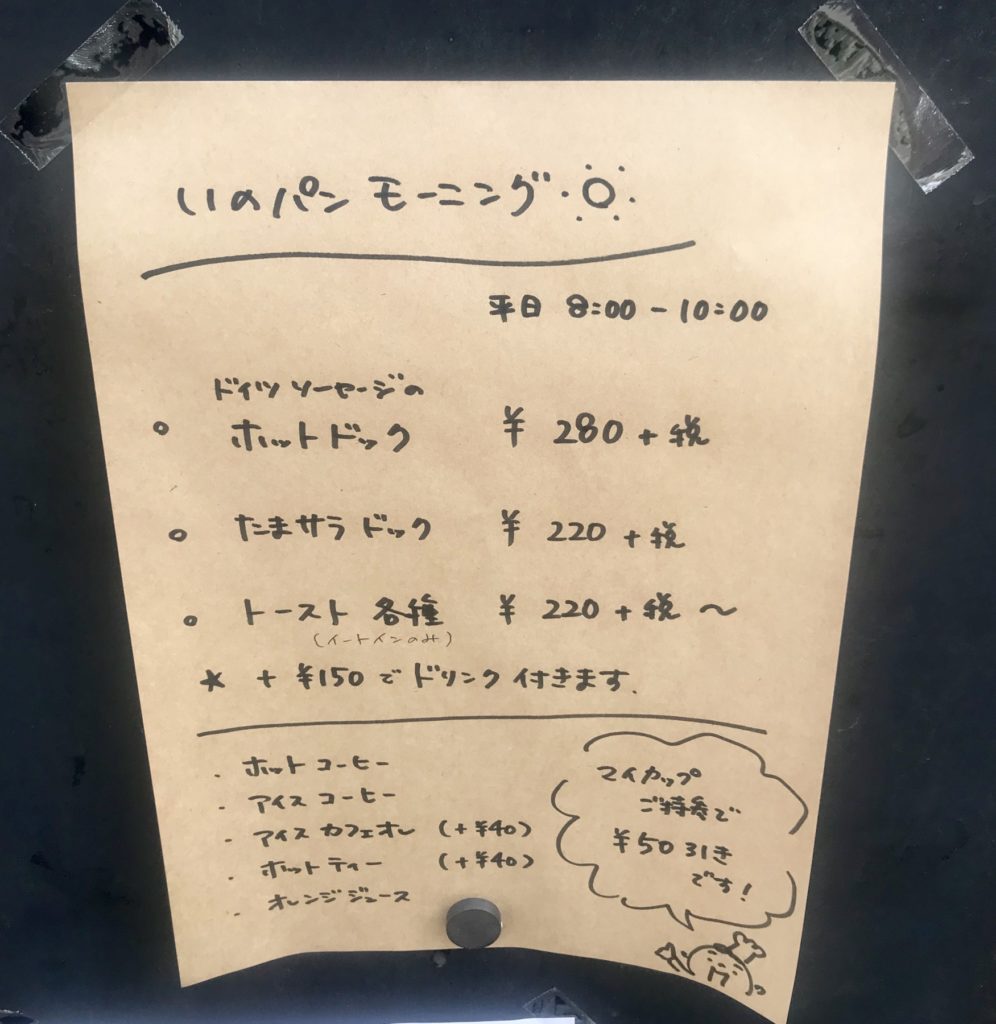 いのパン モーニング
平日 8:00 - 10:00
ドイツソーセージの
ホットドック ¥ 280 + 税
たまサラドック ¥ 220 + 税
トースト 各種 ¥ 220 + 税 〜
(イートインのみ)
* + ¥150 で ドリンク 付きます.
・ホットコーヒー
・アイスコーヒー
・アイスカフェオレ (+¥40)
・ホットティー (+¥40)
・オレンジジュース
マイカップ
ご持参で
¥50 引き
です!